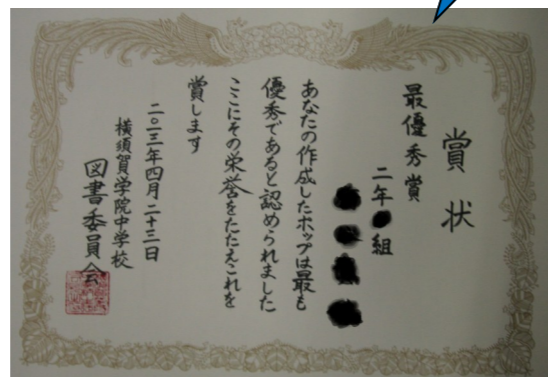 賞状
最優秀賞
二年 組
あなたの作成したポップは最も
優秀であると認められました
ここにその栄誉をたたえこれを
賞します
二〇一三年四月二十三日
横須賀学院中学校
図書委員会